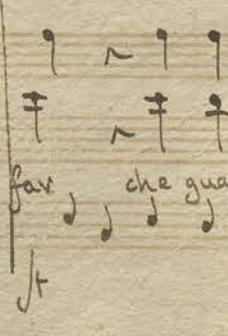 far che gua